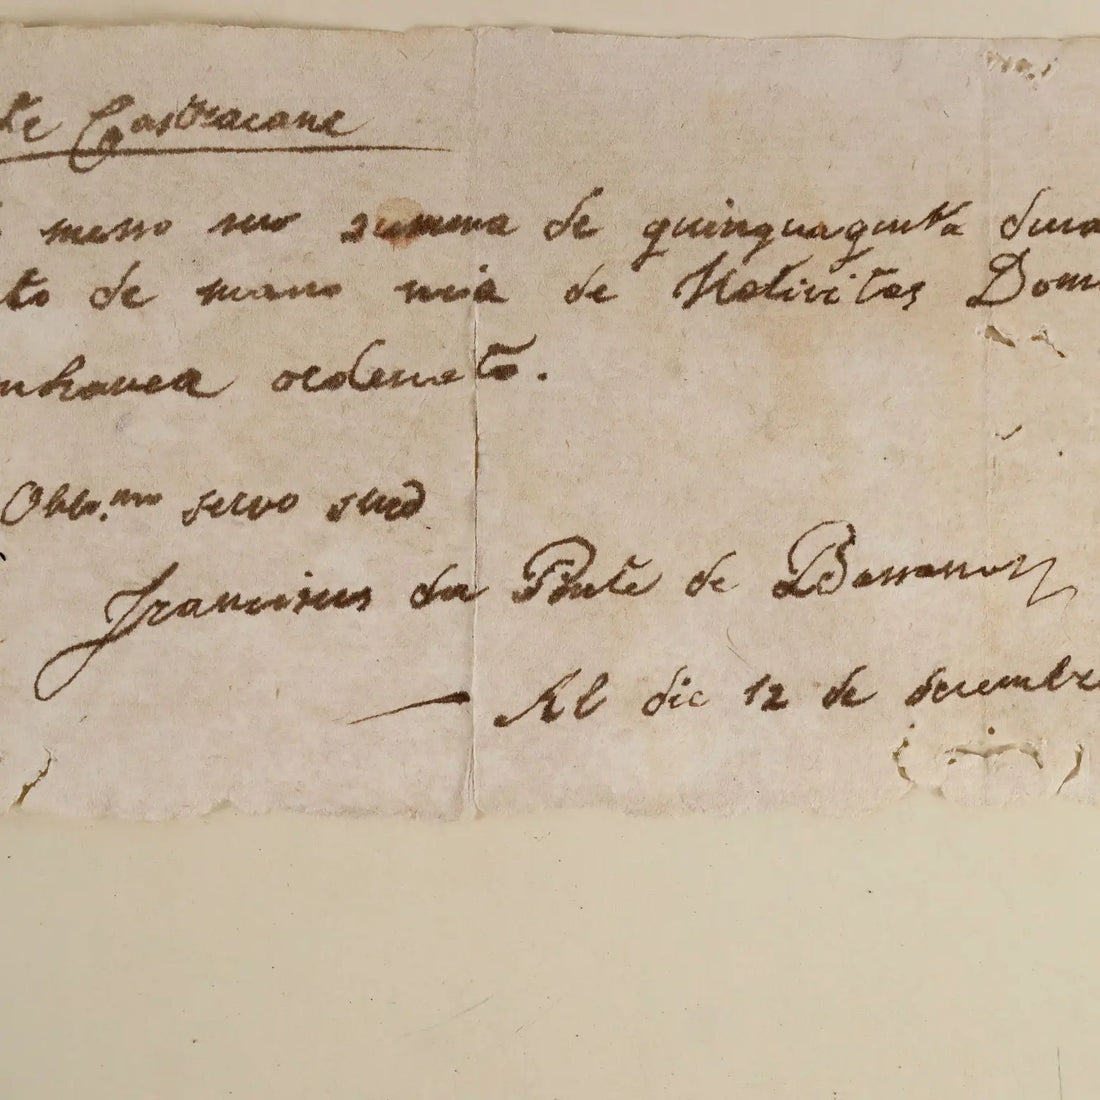 te Castracane
messo suo summa de quinquaginta duca
to de mano mia de Nativitas Dom
nhavea ordenato.
Obb.mo servo suo
Francisus da Ponte de Bassano
Al die 12 de decembre